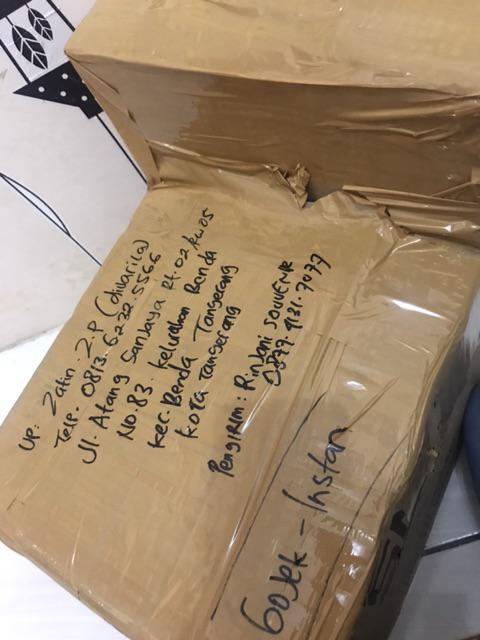 UP: Zatin: Z.P (divarila)
Telp. 0813.6232.5566
Jl. Atang Sanjaya Rt.02 Rw05
No.83. Kelurahan Benda
Kec. Benda Tangerang
Kota Tangerang
Pengirim: Rinjani SOUVENIR
0877.9131.7077
Gojek - Instan